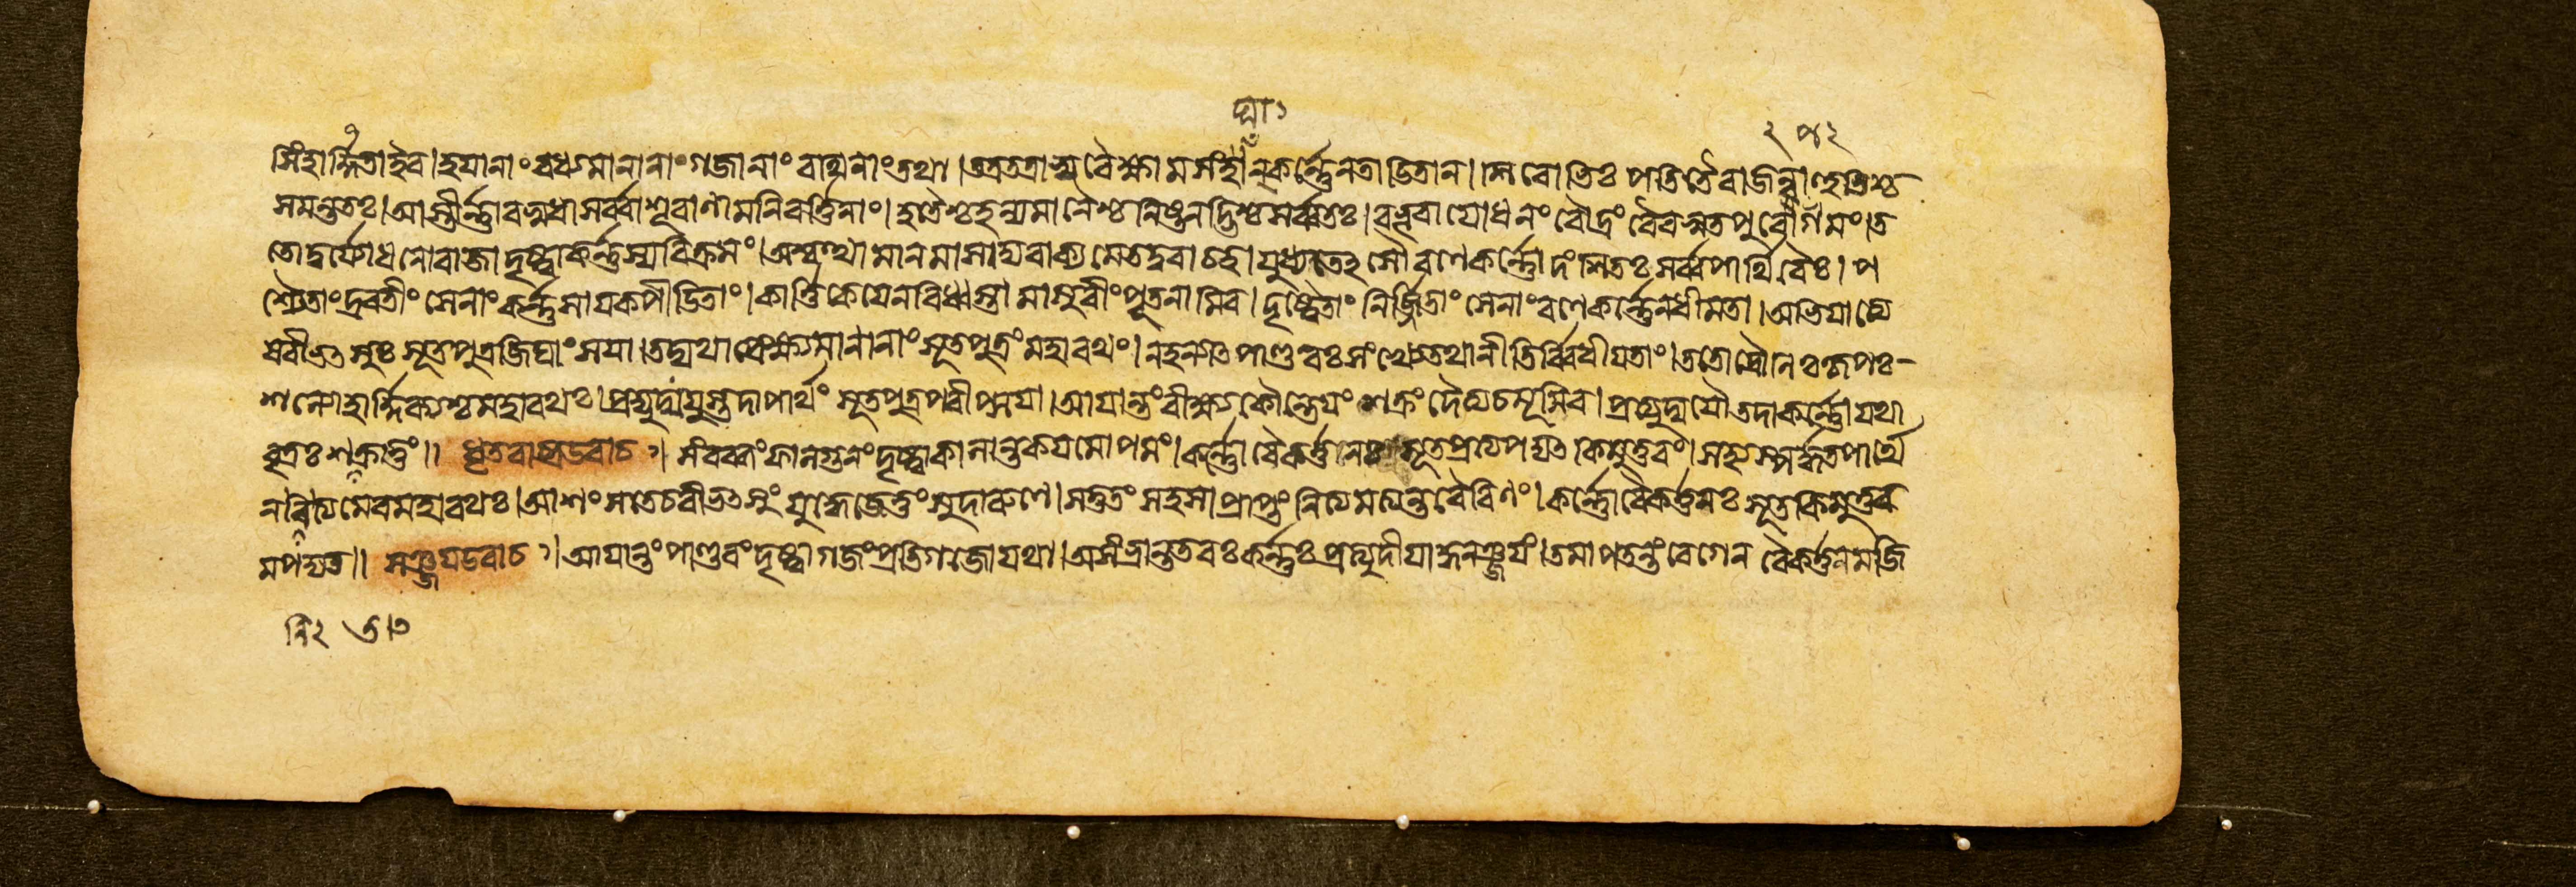 ঘা১
২ ৸ ২
সিংহার্দ্দিতাইব।হয়ানাং বধ্যমানানাং গজানাং বাথিনাং তথা।তত্রতত্রাভ্যবৈক্ষাম সংঘান্ কর্ন্নেন তাড়িতান। শিবোভিঃ পতিতৈর্বাজন্ বাহুভিশ্চ
সমন্ততঃ।আস্তীর্ন্নাবসুধাসর্ব্বাশূবাণামনিবর্ত্তিনাং।হতৈশ্চহন্যমানৈশ্চনিষ্টনদ্ভিশ্চসর্ব্বতঃ।বভূবাযোধনং বৌদ্রং বৈবস্বতপুবোপমং।ত
তোদুর্যোধনোবাজাদৃষ্ট্বাকর্ন্নস্যবিক্রমং।অশ্বত্থামানমাসাদ্যবাক্যমেতদুবাচহ।যুধ্যতেঽসৌবণেকর্ন্নোদংশিতঃ সর্ব্বপার্থিবৈঃ।প
শ্যৈতাং দ্রবতীং সেনাং কর্ন্নসায়কপীড়িতাং।কার্ত্তিকেয়েনবিধ্বস্তামাসুবীং পৃতনামিব।দৃষ্ট্বৈতাং নির্জ্জিতাং সেনাং বণেকর্ন্নেনধীমতা।অভিয়াত্যে
ষবীভৎসুঃ সূতপুত্রজিঘাংসয়া।তদ্যথাপ্রেক্ষ্যমানানাং সূতপুত্রং মহাবথং।নহন্যাৎপাণ্ডবঃ সংখ্যেতথানীতির্ব্বিধীয়তাং।ততোদ্রৌনিঃকৃপঃ
শল্যোহার্দ্দিক্যশ্চমহাবথঃ।প্রত্যুদ্যযুস্তদাপার্থং সূতপুত্রপবীপ্সয়া।আয়ান্তং বীক্ষ্যকৌন্তেয়ং শক্রং দৈত্যচমূমিব।প্রত্যুদ্যযৌতদাকর্ন্নোযথা
বৃত্রঃ শতক্রতুং॥ ধৃতবাষ্ট্রউবাচ।সংবব্ধং ফাল্গুনং দৃষ্ট্বাকালান্তকযমোপমং।কর্ন্নোবৈকর্ত্তনঃ সূতপ্রত্যপদ্যৎকিমুত্তবং।সহ্যস্পর্দ্ধতপার্থে
ননিত্যমেবমহাবথঃ।আশংসতেচবীভৎসুং যুদ্ধেজেতুং সুদারুণে।সতুতং সহসাপ্রাপ্তং নিত্যমত্যন্তবৈবিণং।কর্ন্নোবৈকর্ত্তনঃ সূতকিমুত্তব
মপদ্যত॥ সঞ্জয়উবাচ।আয়ান্তং পাণ্ডবং দৃষ্ট্বাগজং প্রতিগজোযথা।অসংভ্রান্ততবঃ কর্ন্নঃ প্রত্যুদীয়াদ্ধনঞ্জয়ং।তমাপতন্তং বেগেন বৈকর্ত্তনমজি